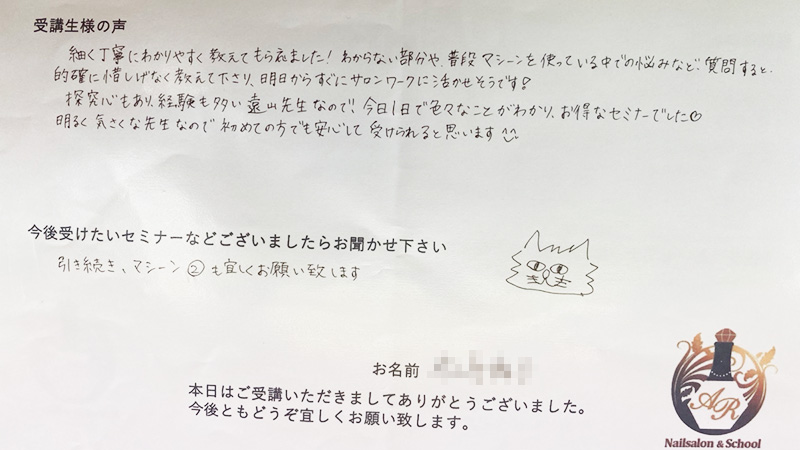 受講生様の声
細く丁寧にわかりやすく教えてもらえました!わからない部分や、普段マシーンを使っている中での悩みなど、質問すると、
的確に惜しげなく教えて下さり、明日からすぐにサロンワークに活かせそうです!
探究心もあり、経験も多い遠山先生なので、今日1日で色々なことがわかり、お得なセミナーでした♡
明るく気さくな先生なので初めての方でも安心して受けられると思います^^
今後受けたいセミナーなどございましたらお聞かせ下さい
引き続き、マシーン②も宜しくお願い致します
お名前
本日はご受講いただきましてありがとうございました。
今後ともどうぞ宜しくお願い致します。
AR
Nailsalon & School